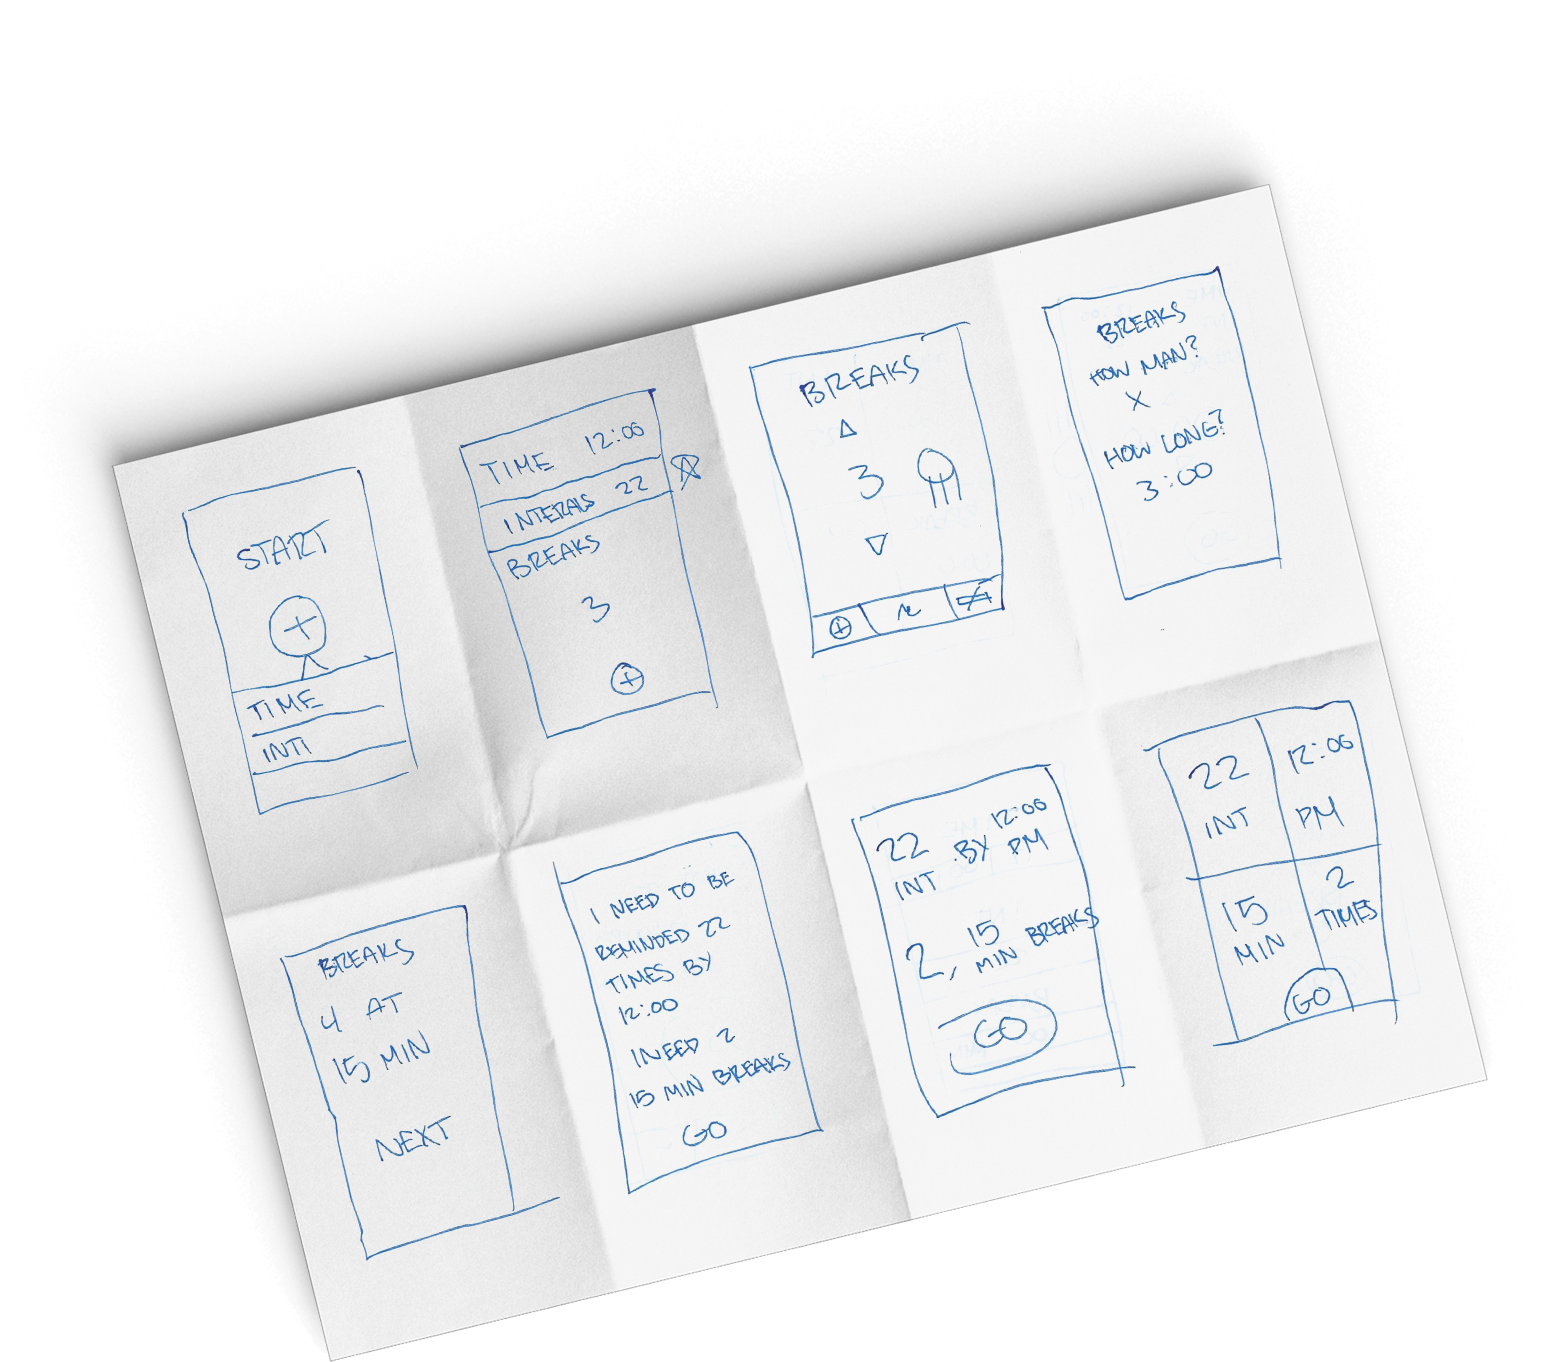 START
TIME
INTI
TIME 12:00
INTERALS 22
BREAKS
3
BREAKS
3
BREAKS
HOW MAN?
X
HOW LONG?
3:00
BREAKS
4 AT
15 MIN
NEXT
I NEED TO BE
REMINDED 22
TIMES BY
12:00
I NEED 2
15 MIN BREAKS
GO
22 BY 12:00 PM
INT
2, 15 MIN BREAKS
GO
22 INT
12:00 PM
15 MIN
2 TIMES
GO